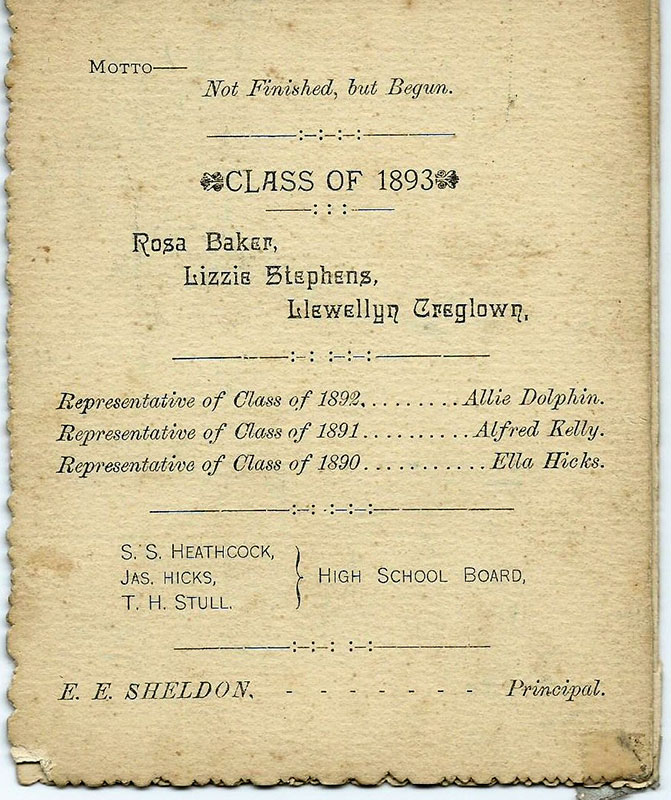 MOTTO—
Not Finished, but Begun.
CLASS OF 1893
Rosa Baker,
Lizzie Stephens,
Llewellyn Creglown,
Representative of Class of 1892.........Allie Dolphin.
Representative of Class of 1891...........Alfred Kelly.
Representative of Class of 1890............Ella Hicks.
S. S. HEATHCOCK,
JAS. HICKS,
T. H. STULL.
HIGH SCHOOL BOARD,
E. E. SHELDON, - - - - - - - Principal.